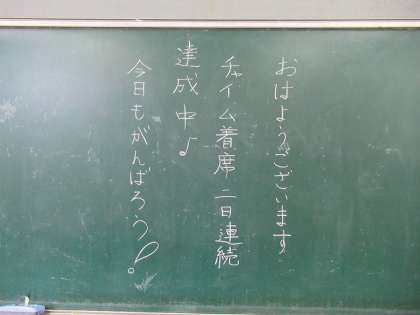 おはようございます
チャイム着席二日連続
達成中♪
今日もがんばろう!。